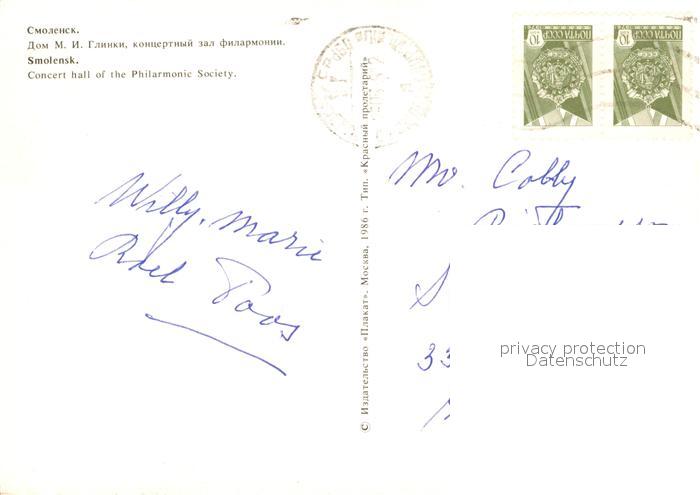 Смоленск.
Дом М. И. Глинки, концертный зал филармонии.
Smolensk.
Concert hall of the Philarmonic Society.
© Издательство «Плакат». Москва, 1986 г. Тип. «Красный пролетарий»
ПОЧТА СССР 10
ПОЧТА СССР 10
Willy, Marie
Roel Poos
Mr. Cobby
S
33
privacy protection
Datenschutz